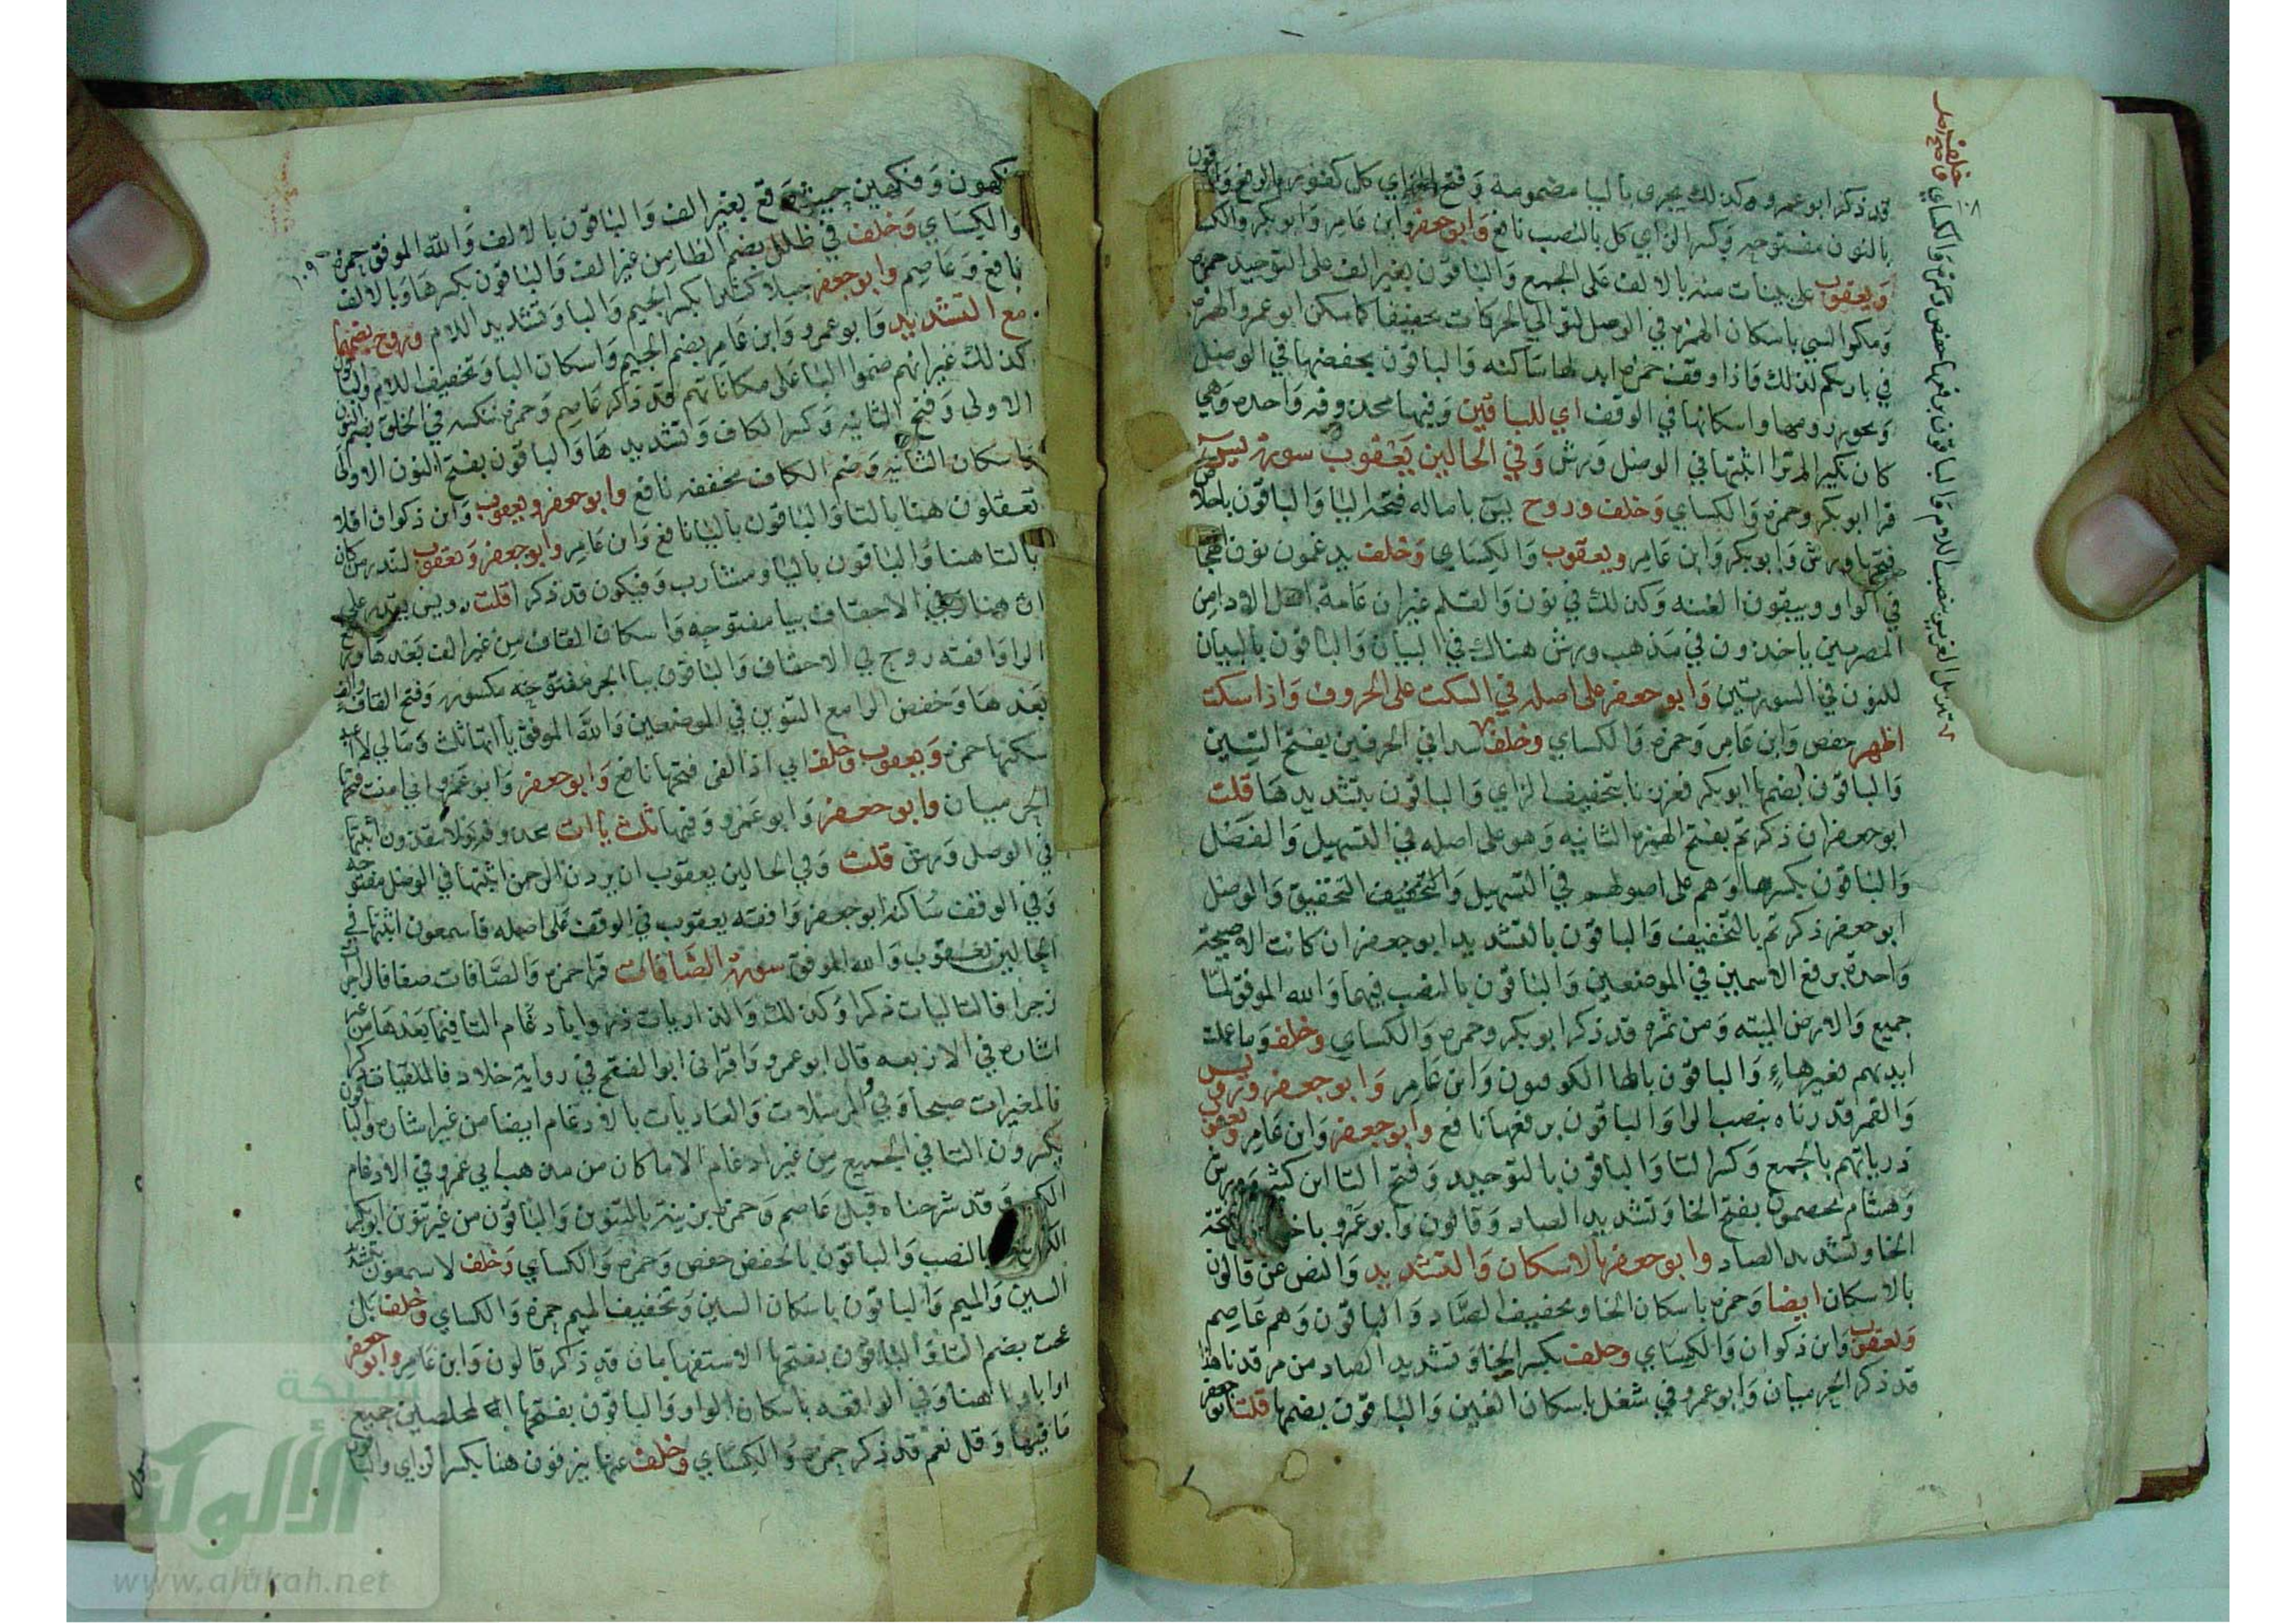 قد ذكر ابو عمرو وكذلك يجزى باليا مضمومة وفتح الزاي كل كفور بالرفع والباقون
بالنون مفتوحه وكسر الزاي كل بالنصب نافع وابو جعفر وابن عامر وابو بكر والكسا
ويعقوب على بينات منه بالالف على الجمع والباقون بغير الف على التوحيد حمزه
ومكر السيي باسكان الهمزه في الوصل لتوالي الحركات تخفيفا كما سكن ابو عمرو الهمزه
في بارئكم لذلك واذا وقف حمزه ابدلها ساكنه والباقون بخفضها في الوصل
ويجوز رومها واسكانها في الوقف اي للباقين وفيها محذوفه واحده وهي
كان نكير الم تر اثبتها في الوصل ورش وفي الحالين يعقوب سورة يس
قرا ابو بكر وحمزه والكساي وخلف وروح يس بامالة فتحة اليا والباقون باخلاص
فتحها ورش وابو بكر وابن عامر ويعقوب والكساي وخلف يدغمون نون الهجا
في الواو ويبقون الغنه وكذلك في نون والقلم غير ان عامة اهل الادا من
المصريين ياخذون في مذهب ورش هناك في البيان والباقون بالبيان
للنون في السورتين وابو جعفر على اصله في السكت على الحروف واذا سكت
اظهر حفص وابن عامر وحمزه والكساي وخلف سدا في الحرفين بفتح السين
والباقون بضمها ابو بكر فعززنا بتخفيف الزاي والباقون بتشديدها قلت
ابو جعفر ان ذكرتم بفتح الهمزه الثانيه وهو على اصله في التسهيل والفصل
والباقون بكسرها وهم على اصولهم في التسهيل والتخفيف التحقيق والوصل
ابو جعفر ذكرتم بالتخفيف والباقون بالتشديد ابو جعفر ان كانت الا صيحة
واحدة برفع الاسمين في الموضعين والباقون بالنصب فيهما والله الموفق لما
جميع والارض الميته ومن ثمره قد ذكر ابو بكر وحمزه والكساي وخلف وما عملت
ايديهم بغير هاء والباقون بالها الكوفيون وابن عامر وابو جعفر ورويس
والقمر قدرناه بنصب الرا والباقون برفعها نافع وابو جعفر وابن عامر ويعقوب
ذرياتهم بالجمع وكسر التا والباقون بالتوحيد وفتح التا ابن كثير وورش
وهشام يخصمون بفتح الخا وتشديد الصاد وقالون وابو عمرو فتحة
الخا وتشديد الصاد وابو جعفر بالاسكان والتشديد والنص عن قالون
بالاسكان ايضا وحمزه باسكان الخا وتخفيف الصاد والباقون وهم عاصم
ويعقوب وابن ذكوان والكساي وخلف بكسر الخا وتشديد الصاد من مرقدنا هذا
قد ذكر الحرميان وابو عمرو في شغل باسكان الغين والباقون بضمها قلت ابو جعفر
١٠٨
١٠٩
فكهون وفكهين حيث وقع بغير الف والباقون بالالف والله الموفق حمزه
والكساي وخلف في ظلل بضم الظا من غير الف والباقون بكسرها وبالالف
نافع وعاصم وابو جعفر جبلا كثيرا بكسر الجيم والبا وتشديد اللام وروح بضمهما
مع التشديد وابو عمرو وابن عامر بضم الجيم واسكان البا وتخفيف اللام والباقون
كذلك غير انهم ضموا البا على مكاناتهم قد ذكر عاصم وحمزه ننكسه في الخلق بضم النون
الاولى وفتح الثانيه وكسر الكاف وتشديدها والباقون بفتح النون الاولى
واسكان الثانيه وضم الكاف مخففه نافع وابو جعفر ويعقوب وابن ذكوان افلا
تعقلون هنا بالتا والباقون باليا نافع وابن عامر وابو جعفر ويعقوب لتنذر من كان
بالتا هنا والباقون باليا ومشارب وفيكون قد ذكر قلت رويس يقدر على
ان هنا وفي الاحقاف بيا مفتوحه واسكان القاف من غير الف بعدها ورفع
الرا وافقه روح في الاحقاف والباقون ببا الجر مفتوحه مكسوره وفتح القاف والف
بعدها وخفض الرا مع التنوين في الموضعين والله الموفق يااتها ثلث ومالي لا اعبد
سكنها حمزه ويعقوب وخلف اني اذا لفي فتحها نافع وابو جعفر وابو عمرو اني امنت فتحها
الحرميان وابو جعفر وابو عمرو وفيها ثلث ياات محذوفه ولا ينقذون اثبتها
في الوصل ورش قلت وفي الحالين يعقوب ان يردن الرحمن اثبتها في الوصل مفتوحه
وفي الوقف ساكنه ابو جعفر وافقه يعقوب في الوقف على اصله فاسمعون اثبتها في
الحالين يعقوب والله الموفق سورة الصافات قرا حمزه والصافات صفا فالزاجرات
زجرا فالتاليات ذكرا وكذلك والذاريات ذروا بادغام التا فيما بعدها من غير
اشاره في الاربعه قال ابو عمرو واقراني ابو الفتح في رواية خلاد فالملقيات ذكرا
فالمغيرات صبحا وفي المرسلات والعاديات بالادغام ايضا من غير اشاره والباقون
بكسرون التا في الجميع من غير ادغام الا ما كان من مذهب ابي عمرو في الادغام
وقد شرحناه قبل عاصم وحمزه بزينة بالتنوين والباقون من غير تنوين ابو بكر
بالنصب والباقون بالخفض حفص وحمزه والكساي وخلف لا يسمعون بتشديد
السين والميم والباقون باسكان السين وتخفيف الميم حمزه والكساي وخلف بل
عجبت بضم التا والباقون بفتحها الاستفهامان قد ذكر قالون وابن عامر وابو جعفر
او اباونا هنا وفي الواقعه باسكان الواو والباقون بفتحها المخلصين جميع
ما فيها وقل نعم قد ذكر حمزه والكساي وخلف عنها ينزفون هنا بكسر الزاي والباقون
شبكة
الألوكة
www.alukah.net